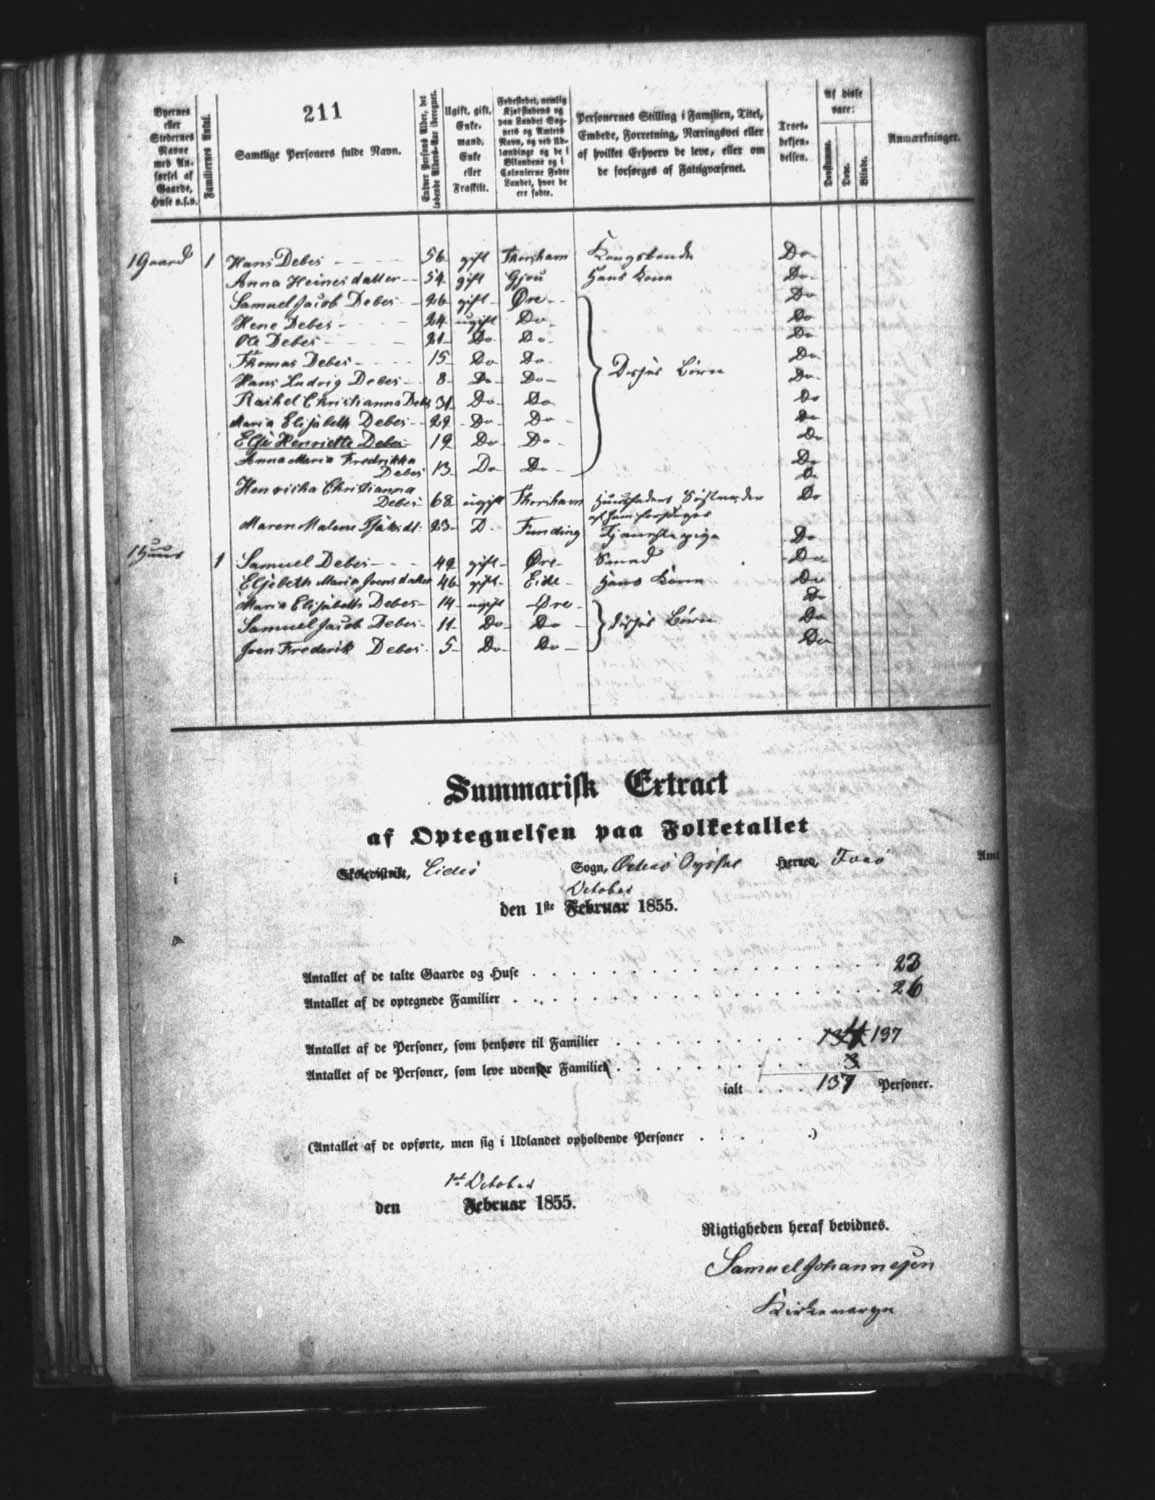 211
Byernes eller Stedernes Navne med Anførsel af Gaarde, Huse o.s.v.
Familiernes Antal.
Samtlige Personers fulde Navn.
Enhver Persons Alder, det løbende Alders-Aar iberegnet.
Ugift, gift, Enkemand, Enke eller Fraskilt.
Fødestedet, nemlig Kjøbstadens og paa Landet Sognets og Amtets Navn, og ved Udlændinge og de i Bilandene og i Colonierne Fødte Landet, hvor de ere fødte.
Personernes Stilling i Familien, Titel, Embede, Forretning, Næringsvei eller af hvilket Erhverv de leve, eller om de forsørges af Fattigvæsenet.
Troesbekjendelsen.
Af disse vare:
Døvstumme.
Døve.
Blinde.
Anmærkninger.
1 Gaard 1 Hans Debes 56 gift Thorshavn Kongsbonde Do
Anna Heinesdatter 54 gift Gjou Hans Kone Do
Samuel Jacob Debes 26 gift Øre Do
Hene Debes 24 ugift Do Do
Ole Debes 21 Do Do Do
Thomas Debes 15 Do Do Do
Hans Ludvig Debes 8 Do Do Disses Børn Do
Rachel Christianna Debes 31 Do Do Do
Maria Elisabeth Debes 29 Do Do Do
Else Henriette Debes 19 Do Do Do
Anna Maria Fredrikka
Debes 13 Do Do Do
Henricka Christianna
Debes 68 ugift Thorshavn Huusfaders Søster, der Do
af ham forsørges
Maren Malene 23 D. Funding Tjenestepige Do
1 Huus 1 Samuel Debes 49 gift Øre Do
Elsebeth Maria Joensdatter 46 gift Eide Hans Kone Do
Maria Elisabeth Debes 14 ugift Øre Do
Samuel Jacob Debes 11 Do Do disses Børn Do
Joen Frederik Debes 5 Do Do Do
Summarisk Extract
af Optegnelsen paa Folketallet
i Skoledistrikt, Eides Sogn, Østerø Syssel Herred, Færø Amt
October
den 1ste Februar 1855.
Antallet af de talte Gaarde og Huse 23
Antallet af de optegnede Familier 26
Antallet af de Personer, som henhøre til Familier 134 137
Antallet af de Personer, som leve udenfor Familier 3
ialt 137 Personer.
(Antallet af de opførte, men sig i Udlandet opholdende Personer .)
1st October
den Februar 1855.
Rigtigheden heraf bevidnes.
Samuel Johannesen
Kirkeværge